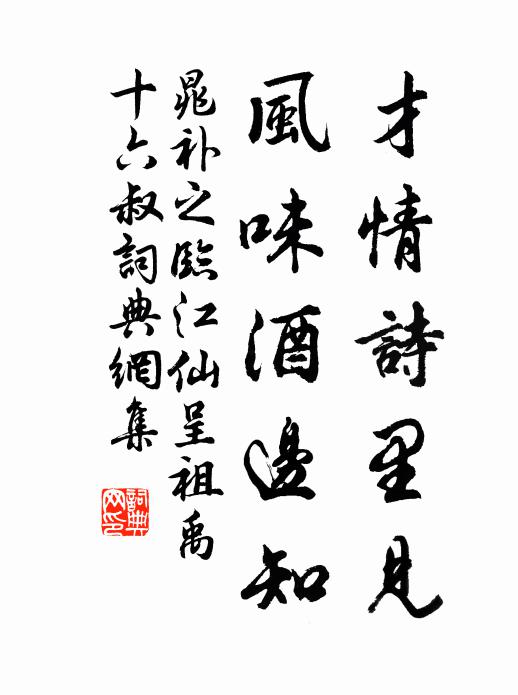 才情詩里見
風味酒邊知
晁补之臨江仙呈祖禹
十六叔詞典網集
詞典网印